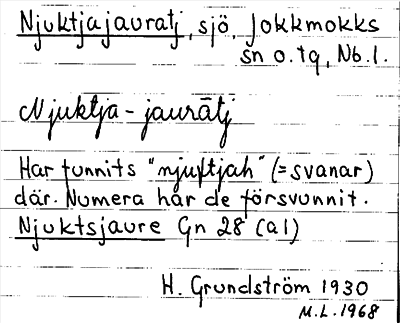 Njuktjajauratj, sjö, Jokkmokks
sn o. tg, Nb. l.
Njuktja-jaurātj
Har funnits "njuktjah" (= svanar)
där. Numera har de försvunnit.
Njuktsjaure Gn 28 (a1)
H. Grundström 1930
M.L. 1968